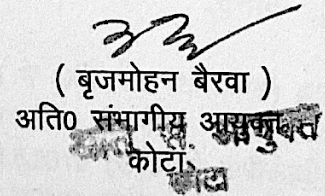 ( बृजमोहन बैरवा )
अति0 संभागीय आयुक्त
कोटा